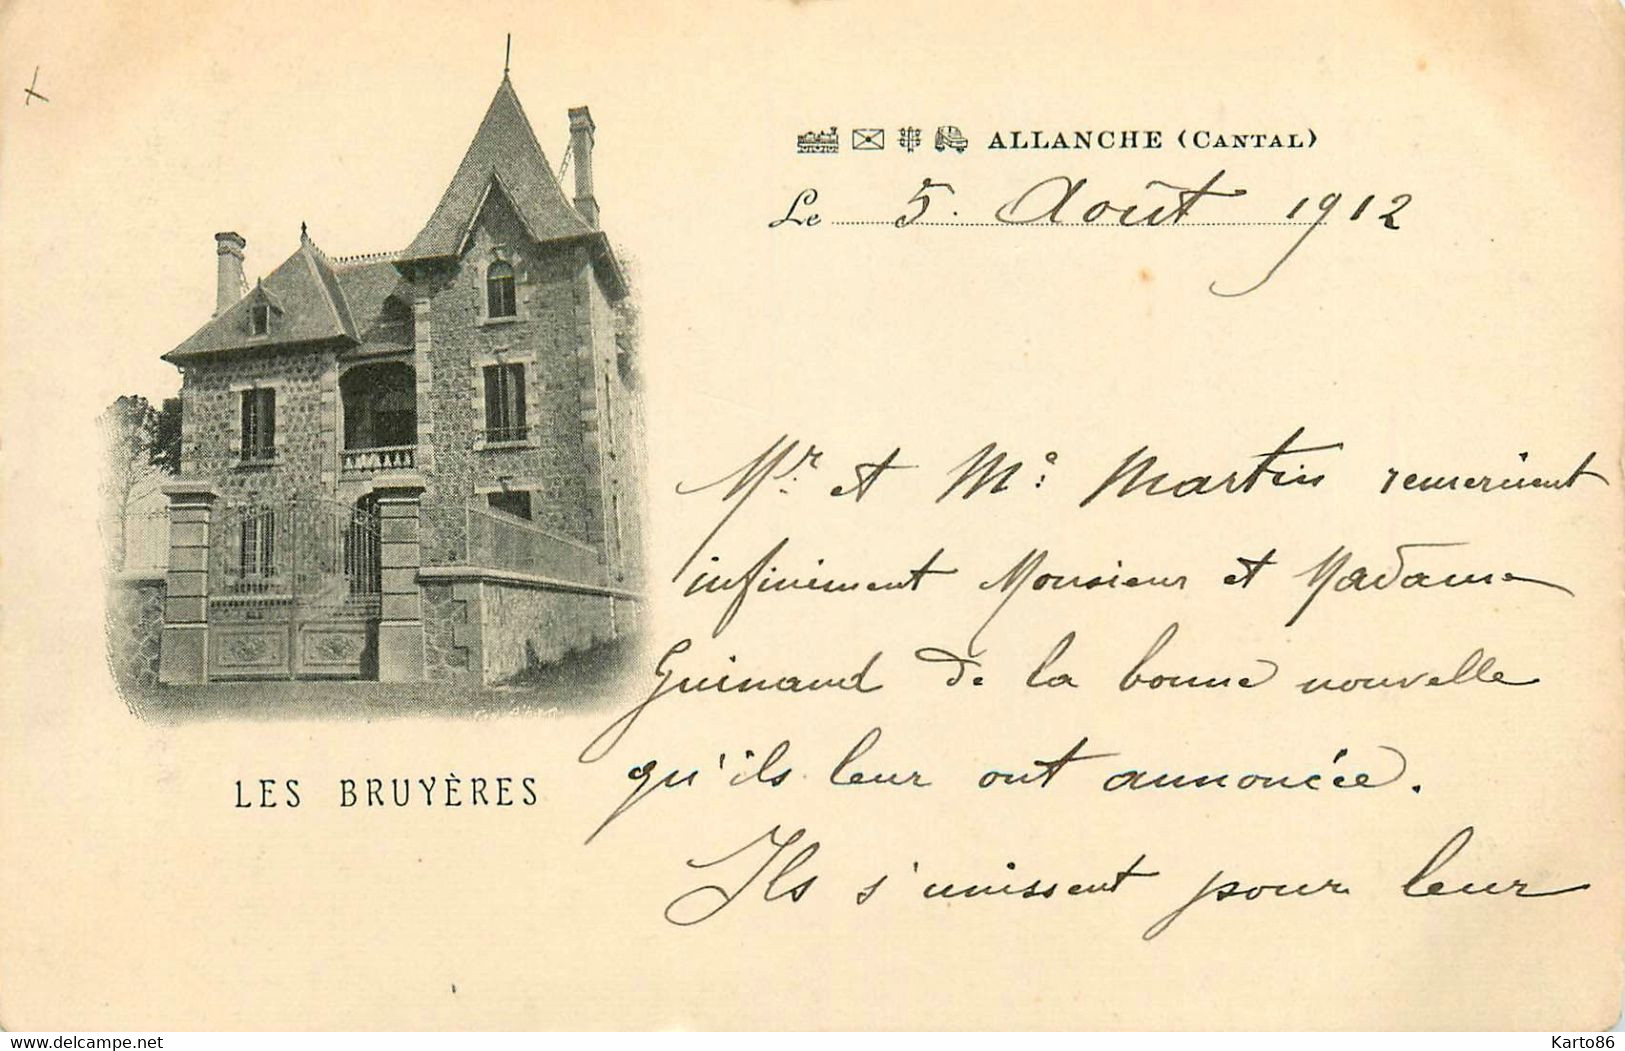 ALLANCHE (CANTAL)
Le 5. Août 1912
Mr. et Me: Martin remercient
infiniment Monsieur et Madame
Guinand de la bonne nouvelle
qu'ils leur ont annoncée.
Ils s'unissent pour leur
LES BRUYÈRES
delcampe.net
Karto86